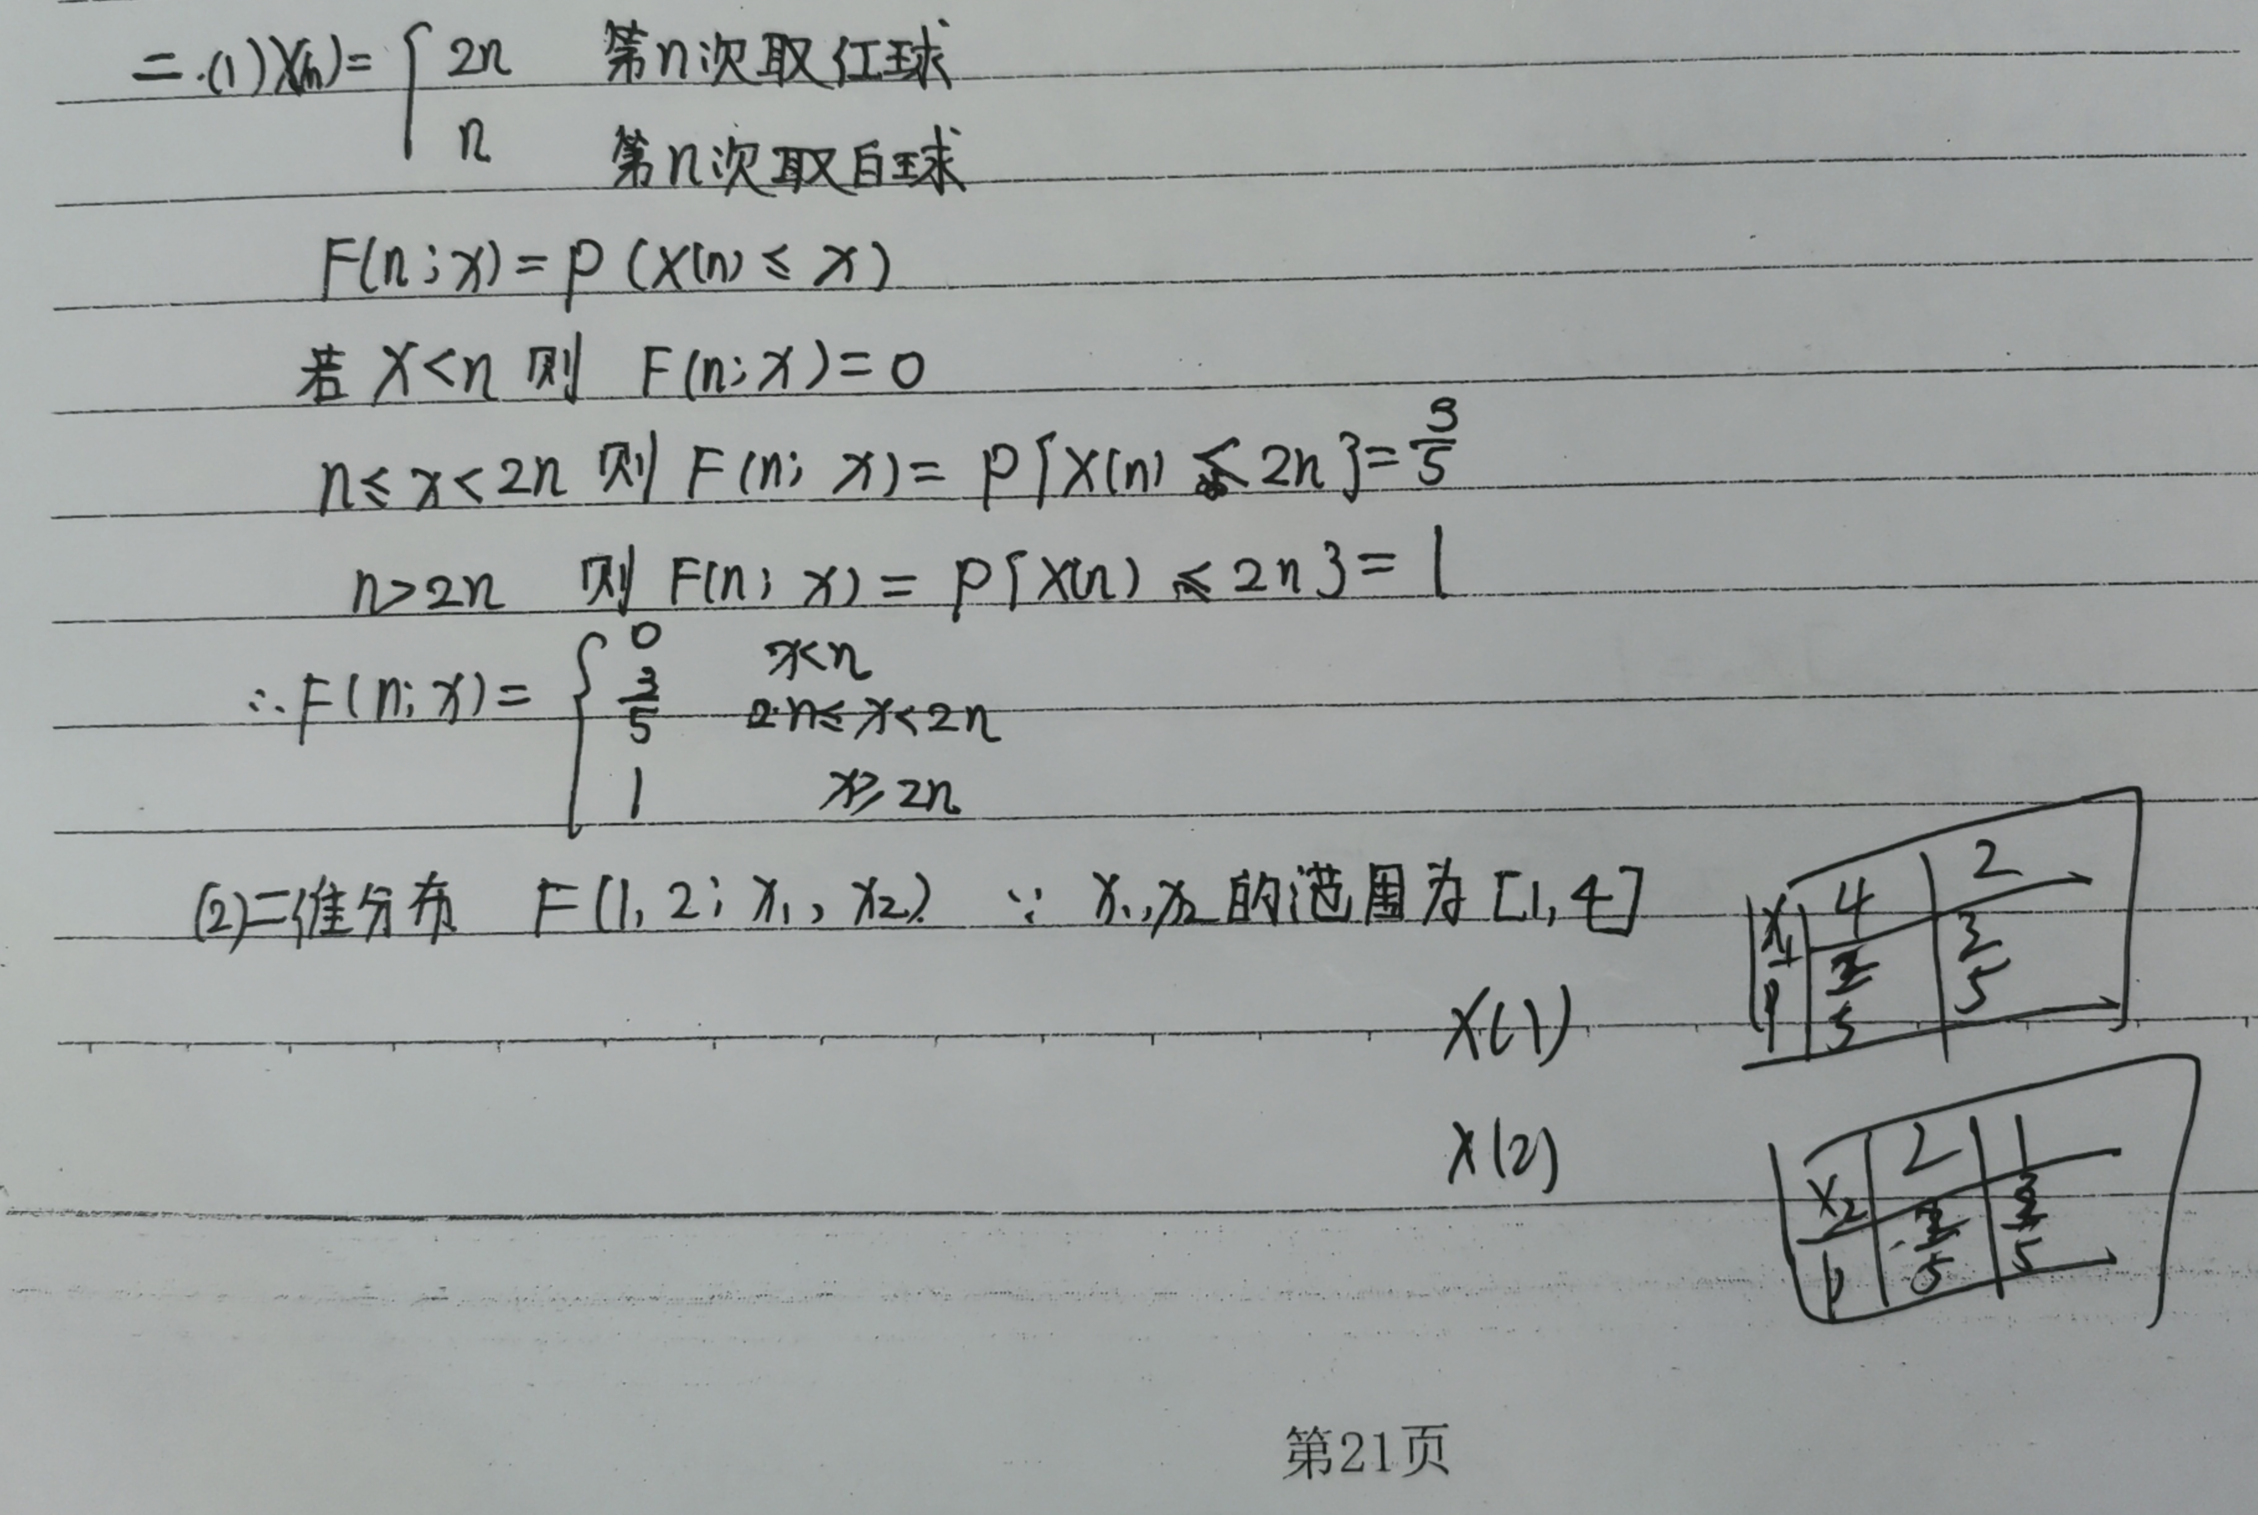 二.(1)X(n)={2n 第n次取红球
n 第n次取白球
F(n;x)=P(X(n)≤x)
若 X<n 则 F(n;x)=0
n≤x<2n 则 F(n;x)=P{X(n)≤2n}=3/5
n>2n 则 F(n;x)=P{X(n)≤2n}=1
∴F(n;x)={0 x<n
3/5 2n≤x<2n
1 x≥2n
(2)二维分布 F(1,2;x₁,x₂) ∵ x₁,x₂的范围为[1,4]
X(1)
X₁ 4 2
P 2/5 3/5
X(2)
X₂ 2 1
P 2/5 3/5
第21页